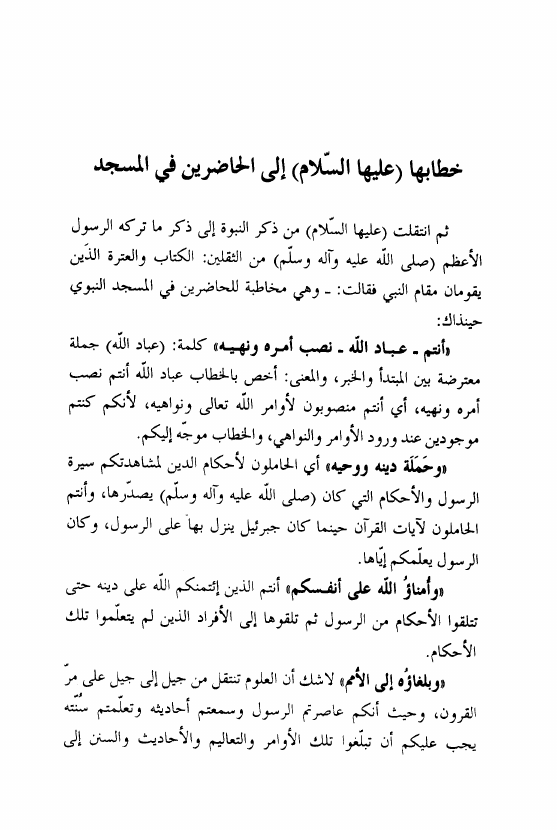 خطابها (عليها السّلام) إلى الحاضرين في المسجد
ثم انتقلت (عليها السّلام) من ذكر النبوة إلى ذكر ما تركه الرسول
الأعظم (صلى اللّه عليه وآله وسلّم) من الثقلين: الكتاب والعترة الذَين
يقومان مقام النبي فقالت: ـ وهي مخاطبة للحاضرين في المسجد النبوي
حينذاك:
«أنتم ـ عـبـاد اللّه ـ نصب أمـره ونهـيـه» كلمة: (عباد اللّه) جملة
معترضة بين المبتدأ والخبر، والمعنى: أخص بالخطاب عباد اللّه أنتم نصب
أمره ونهيه، أي أنتم منصوبون لأوامر اللّه تعالى ونواهيه، لأنكم كنتم
موجودين عند ورود الأوامر والنواهي، والخطاب موجّه إليكم.
«وحَمَلَة دينه ووحيه» أي الحاملون لأحكام الدين لمشاهدتكم سيرة
الرسول والأحكام التي كان (صلى اللّه عليه وآله وسلّم) يصدّرها، وأنتم
الحاملون لآيات القرآن حينما كان جبرئيل ينزل بها على الرسول، وكان
الرسول يعلّمكم إيّاها.
«وأُمناؤُ اللّه على أنفـسكم» أنتم الذين إئتمنكم اللّه على دينه حتى
تتلقوا الأحكام من الرسول ثم تلقوها إلى الأفراد الذين لم يتعلّموا تلك
الأحكام.
«وبلغاؤُه إلى الأمم» لاشك أن العلوم تنتقل من جيل إلى جيل على مرّ
القرون، وحيث أنكم عاصرتم الرسول وسمعتم أحاديثه وتعلّمتم سُنّته
يجب عليكم أن تبلّغوا تلك الأوامر والتعاليم والأحاديث والسنن إلى